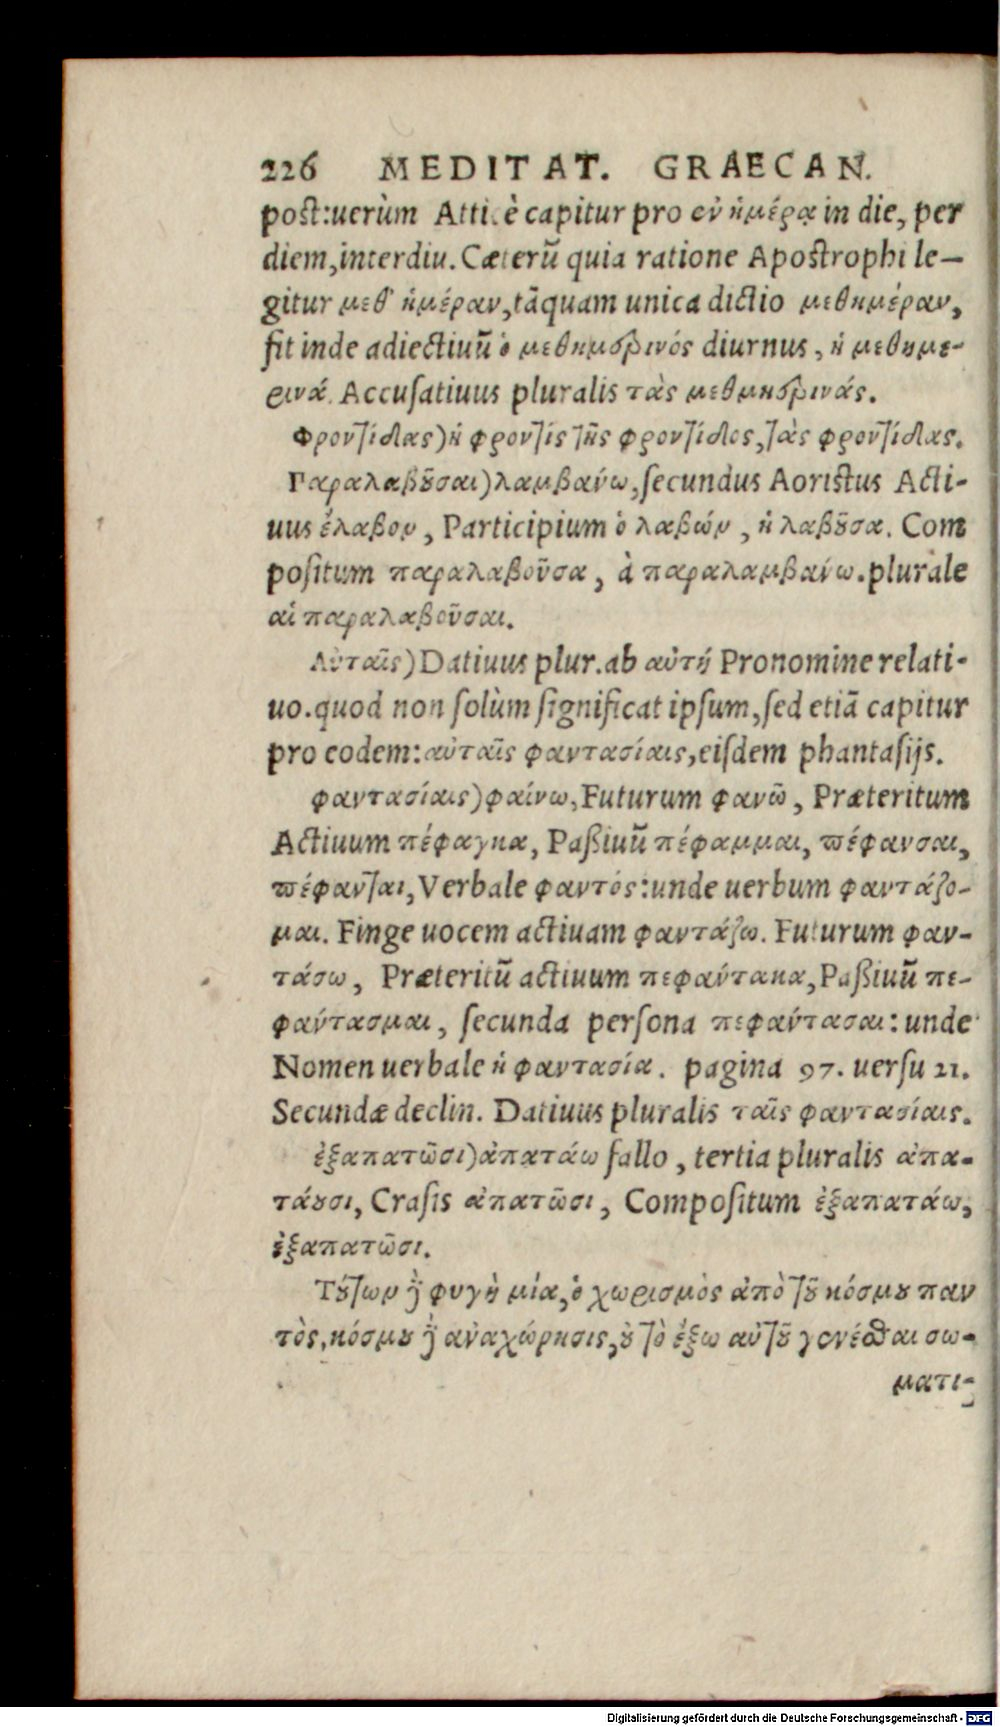 226 MEDITAT. GRAECAN.
post:uerùm Atticè capitur pro ἐν ἡμέρᾳ in die, per
diem,interdiu. Cæterũ quia ratione Apostrophi le-
gitur μεθ' ἡμέραν,tãquam unica dictio μεθημέραν,
fit inde adiectiuũ ὁ μεθημερινός diurnus, ἡ μεθημε-
ρινά. Accusatiuus pluralis τὰς μεθμηερινάς.
Φροντίδας)ἡ φροντίς τῆς φροντίδος,τὰς φροντίδας.
Παραλαβοῦσαι)λαμβάνω,secundus Aoristus Acti-
uus ἔλαβον, Participium ὁ λαβών, ἡ λαβοῦσα. Com
positum παραλαβοῦσα, à παραλαμβάνω.plurale
αἱ παραλαβοῦσαι.
Αὐταῖς)Datiuus plur.ab αὐτή Pronomine relati-
uo.quod non solùm significat ipsum,sed etiã capitur
pro eodem:αὐταῖς φαντασίαις,eisdem phantasijs.
φαντασίαις)φαίνω,Futurum φανῶ, Præteritum
Actiuum πέφαγκα, Paßiuũ πέφαμμαι, πέφανσαι,
πέφανται,Verbale φαντός:unde uerbum φαντάζο-
μαι. Finge uocem actiuam φαντάζω. Futurum φαν-
τάσω, Præteritũ actiuum πεφάντακα,Paßiuũ πε-
φάντασμαι, secunda persona πεφάντασαι:unde
Nomen uerbale ἡ φαντασία. pagina 97. uersu 21.
Secundæ declin. Datiuus pluralis ταῖς φαντασίαις.
ἐξαπατῶσι)ἀπατάω fallo, tertia pluralis ἀπα-
τάουσι, Crasis ἀπατῶσι, Compositum ἐξαπατάω,
ἐξαπατῶσι.
Τούτων δὲ φυγὴ μία,ὁ χωρισμὸς ἀπὸ τοῦ κόσμου παν
τὸς,κόσμου δὲ ἀναχώρησις,οὐ τὸ ἔξω αὐτοῦ γενέσθαι σω-
ματι-
Digitalisierung gefördert durch die Deutsche Forschungsgemeinschaft - DFG